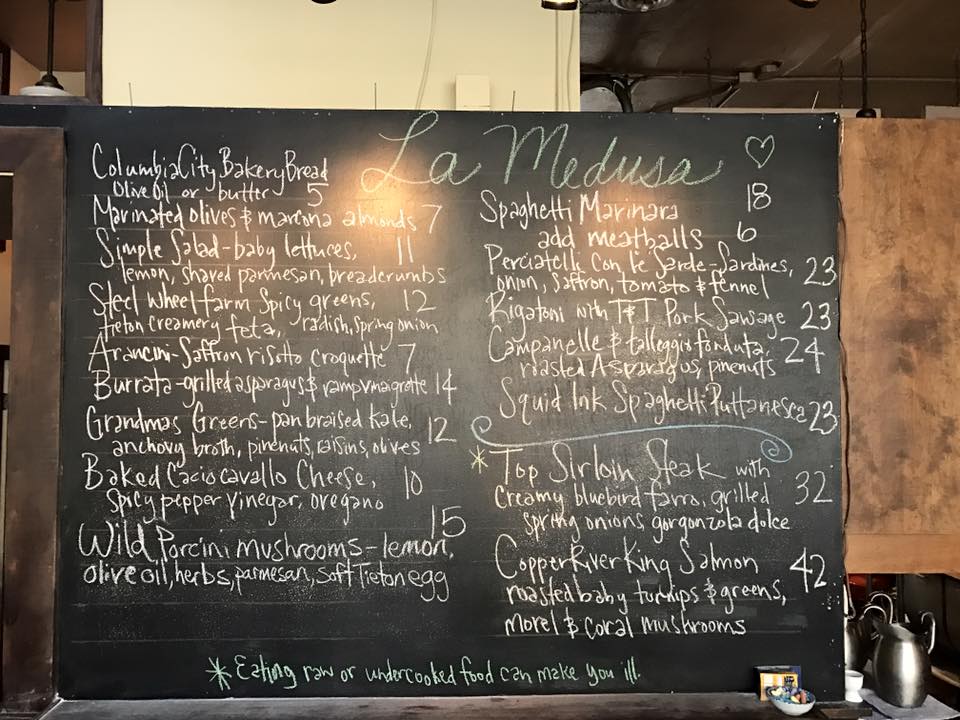 La Medusa
Columbia City Bakery Bread
Olive Oil or butter 5
Marinated olives & marcona almonds 7
Simple Salad-baby lettuces, 11
lemon, shaved parmesan, breadcrumbs
Steel Wheel farm Spicy greens, 12
tieton creamery feta, radish, spring onion
Arancini-Saffron risotto croquette 7
Burrata-grilled asparagus & ramp vinaigrette 14
Grandmas Greens-pan braised kale, 12
anchovy broth, pinenuts, raisins, olives
Baked Caciocavallo Cheese, 10
Spicy pepper vinegar, oregano
Wild Porcini mushrooms-lemon, 15
olive oil, herbs, parmesan, soft Tieton egg
Spaghetti Marinara 18
add meatballs 6
Perciatelli Con le Sarde-Sardines, 23
onion, saffron, tomato & fennel
Rigatoni with T&T Pork Sausage 23
Campanelle & talleggio fonduta, 24
roasted Asparagus, pinenuts
Squid Ink Spaghetti Puttanesca 23
*Top Sirloin Steak with 32
Creamy bluebird farro, grilled
spring onions gorgonzola dolce
Copper River King Salmon 42
roasted baby turnips & greens,
morel & coral mushrooms
*Eating raw or undercooked food can make you ill.